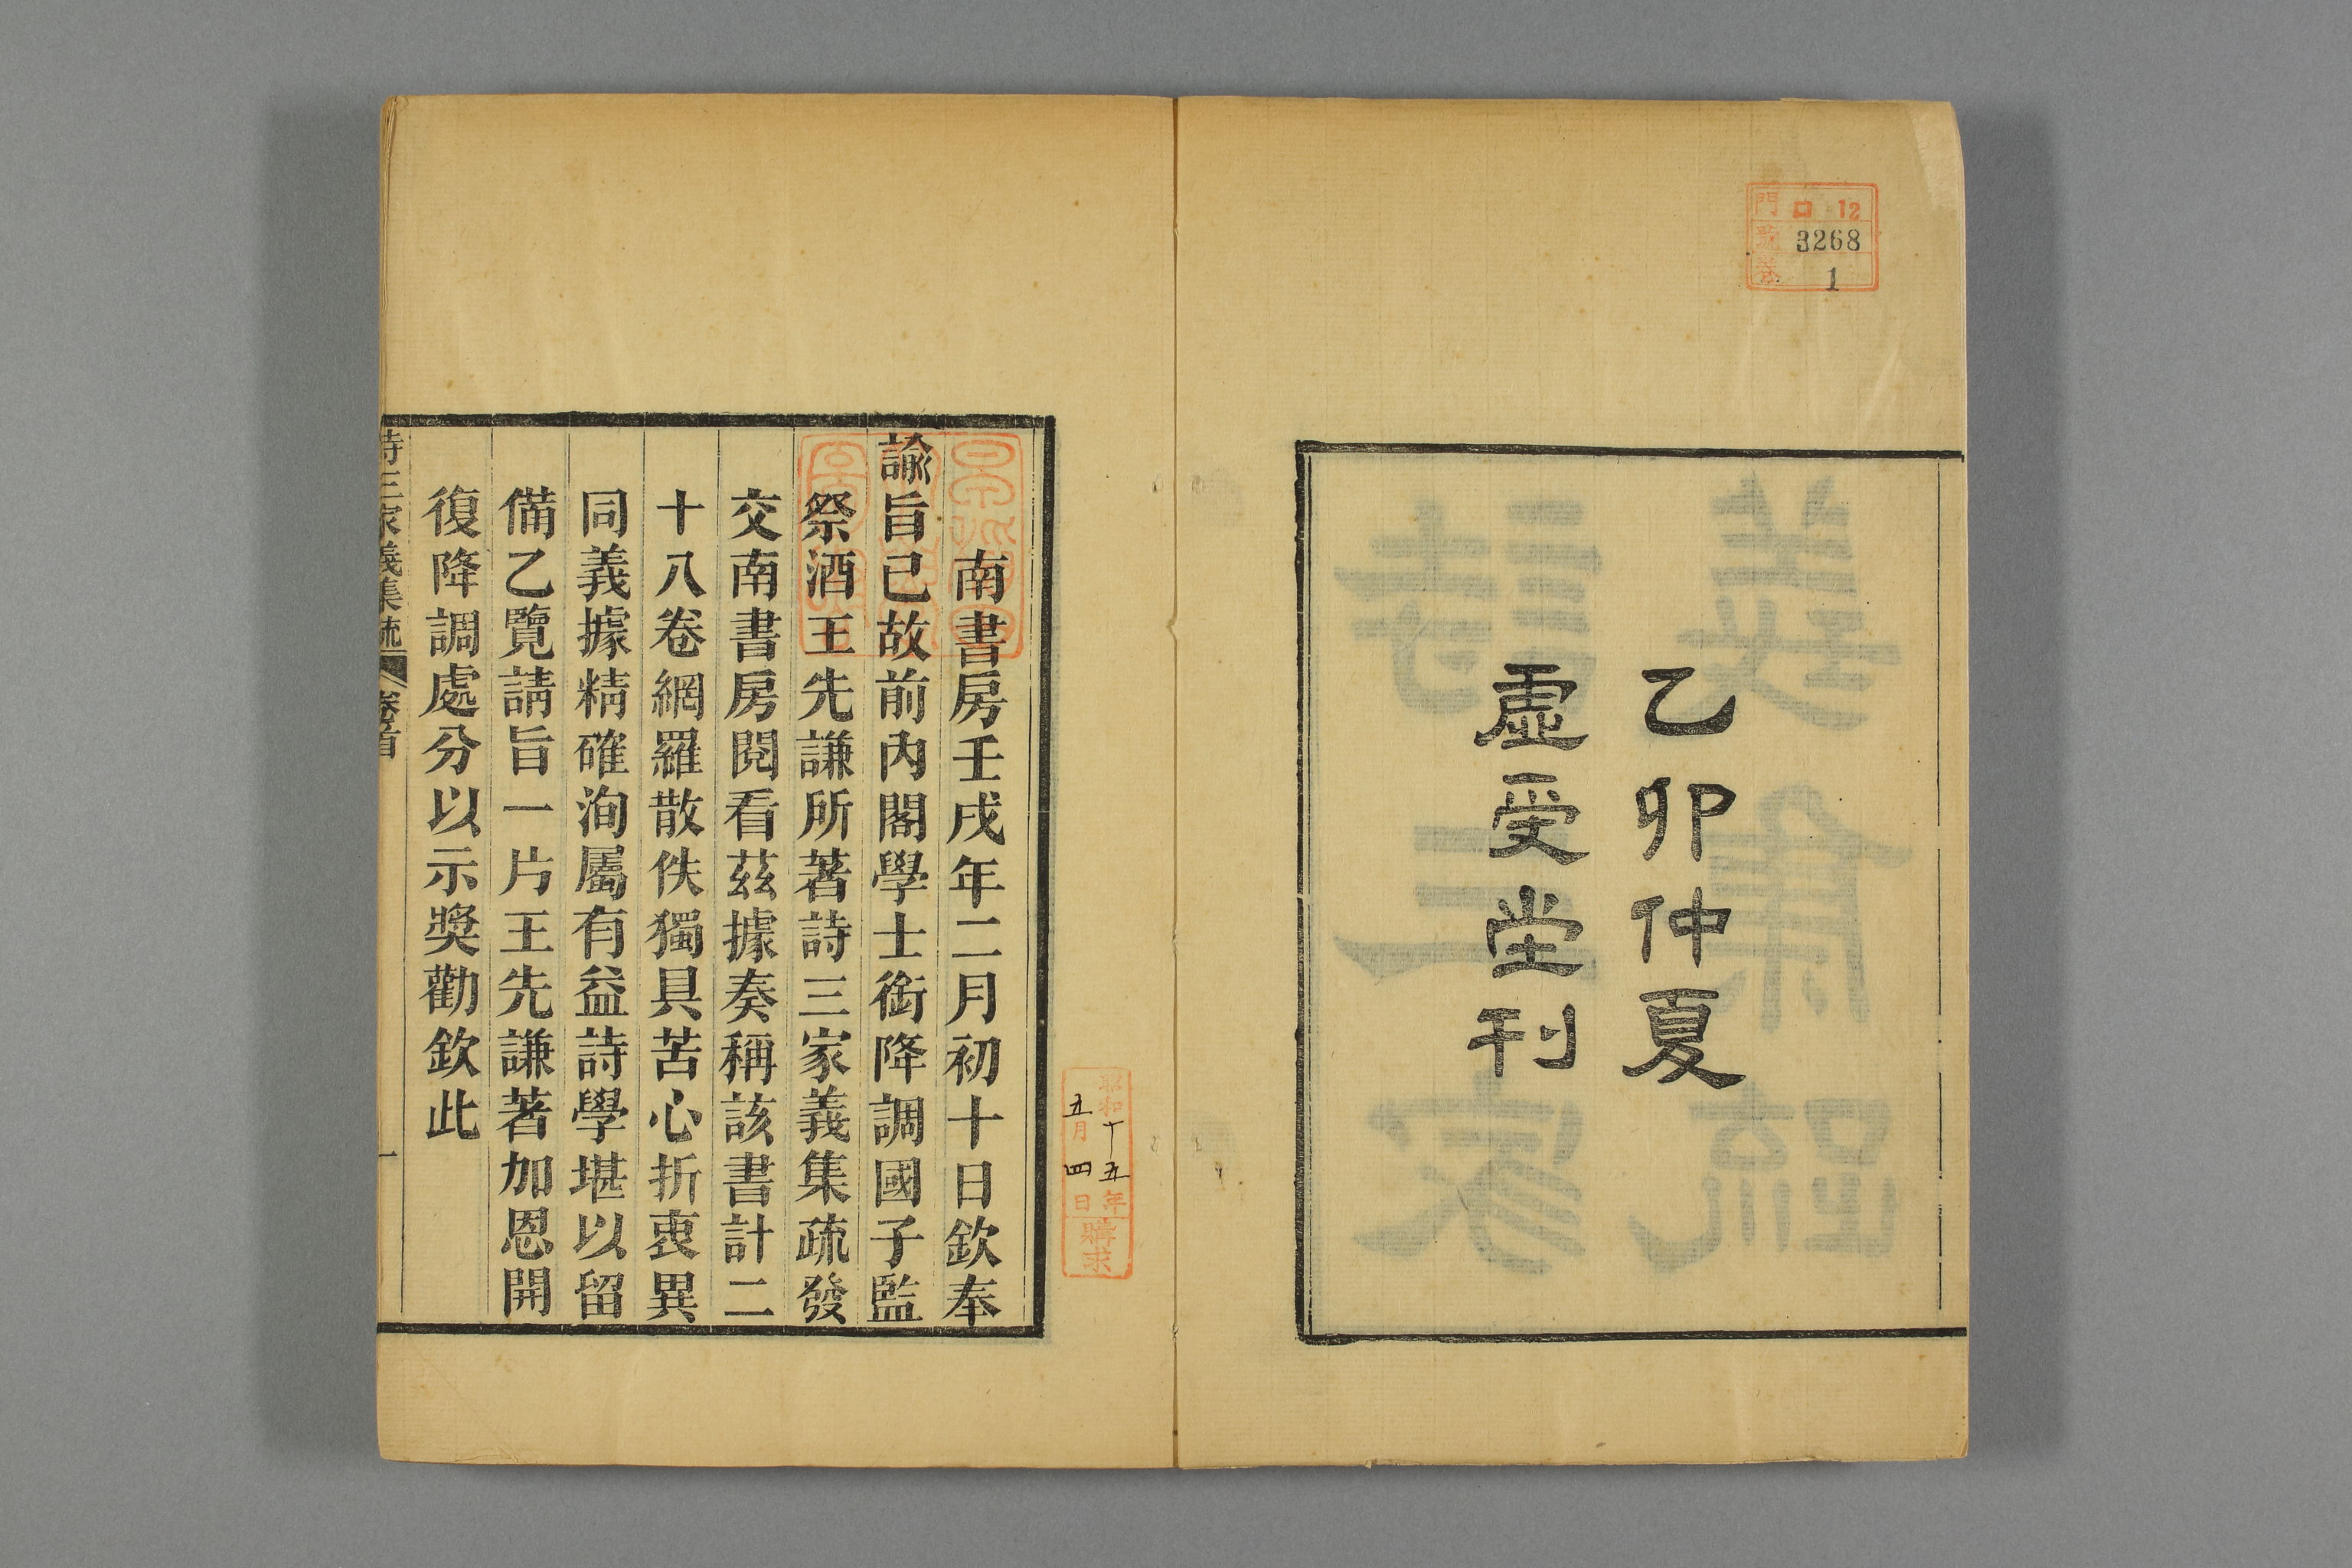 門 ロ 12
號 3268
卷 1
乙卯仲夏
虛受堂刊
昭和十五年
五月四日
購求
南書房壬戌年二月初十日欽奉
諭旨已故前內閣學士銜降調國子監
祭酒王先謙所著詩三家義集疏發
交南書房閱看茲據奏稱該書計二
十八卷網羅散佚獨具苦心折衷異
同義據精確洵屬有益詩學堪以留
備乙覽請旨一片王先謙著加恩開
復降調處分以示獎勸欽此
詩三家義集疏 卷首 一